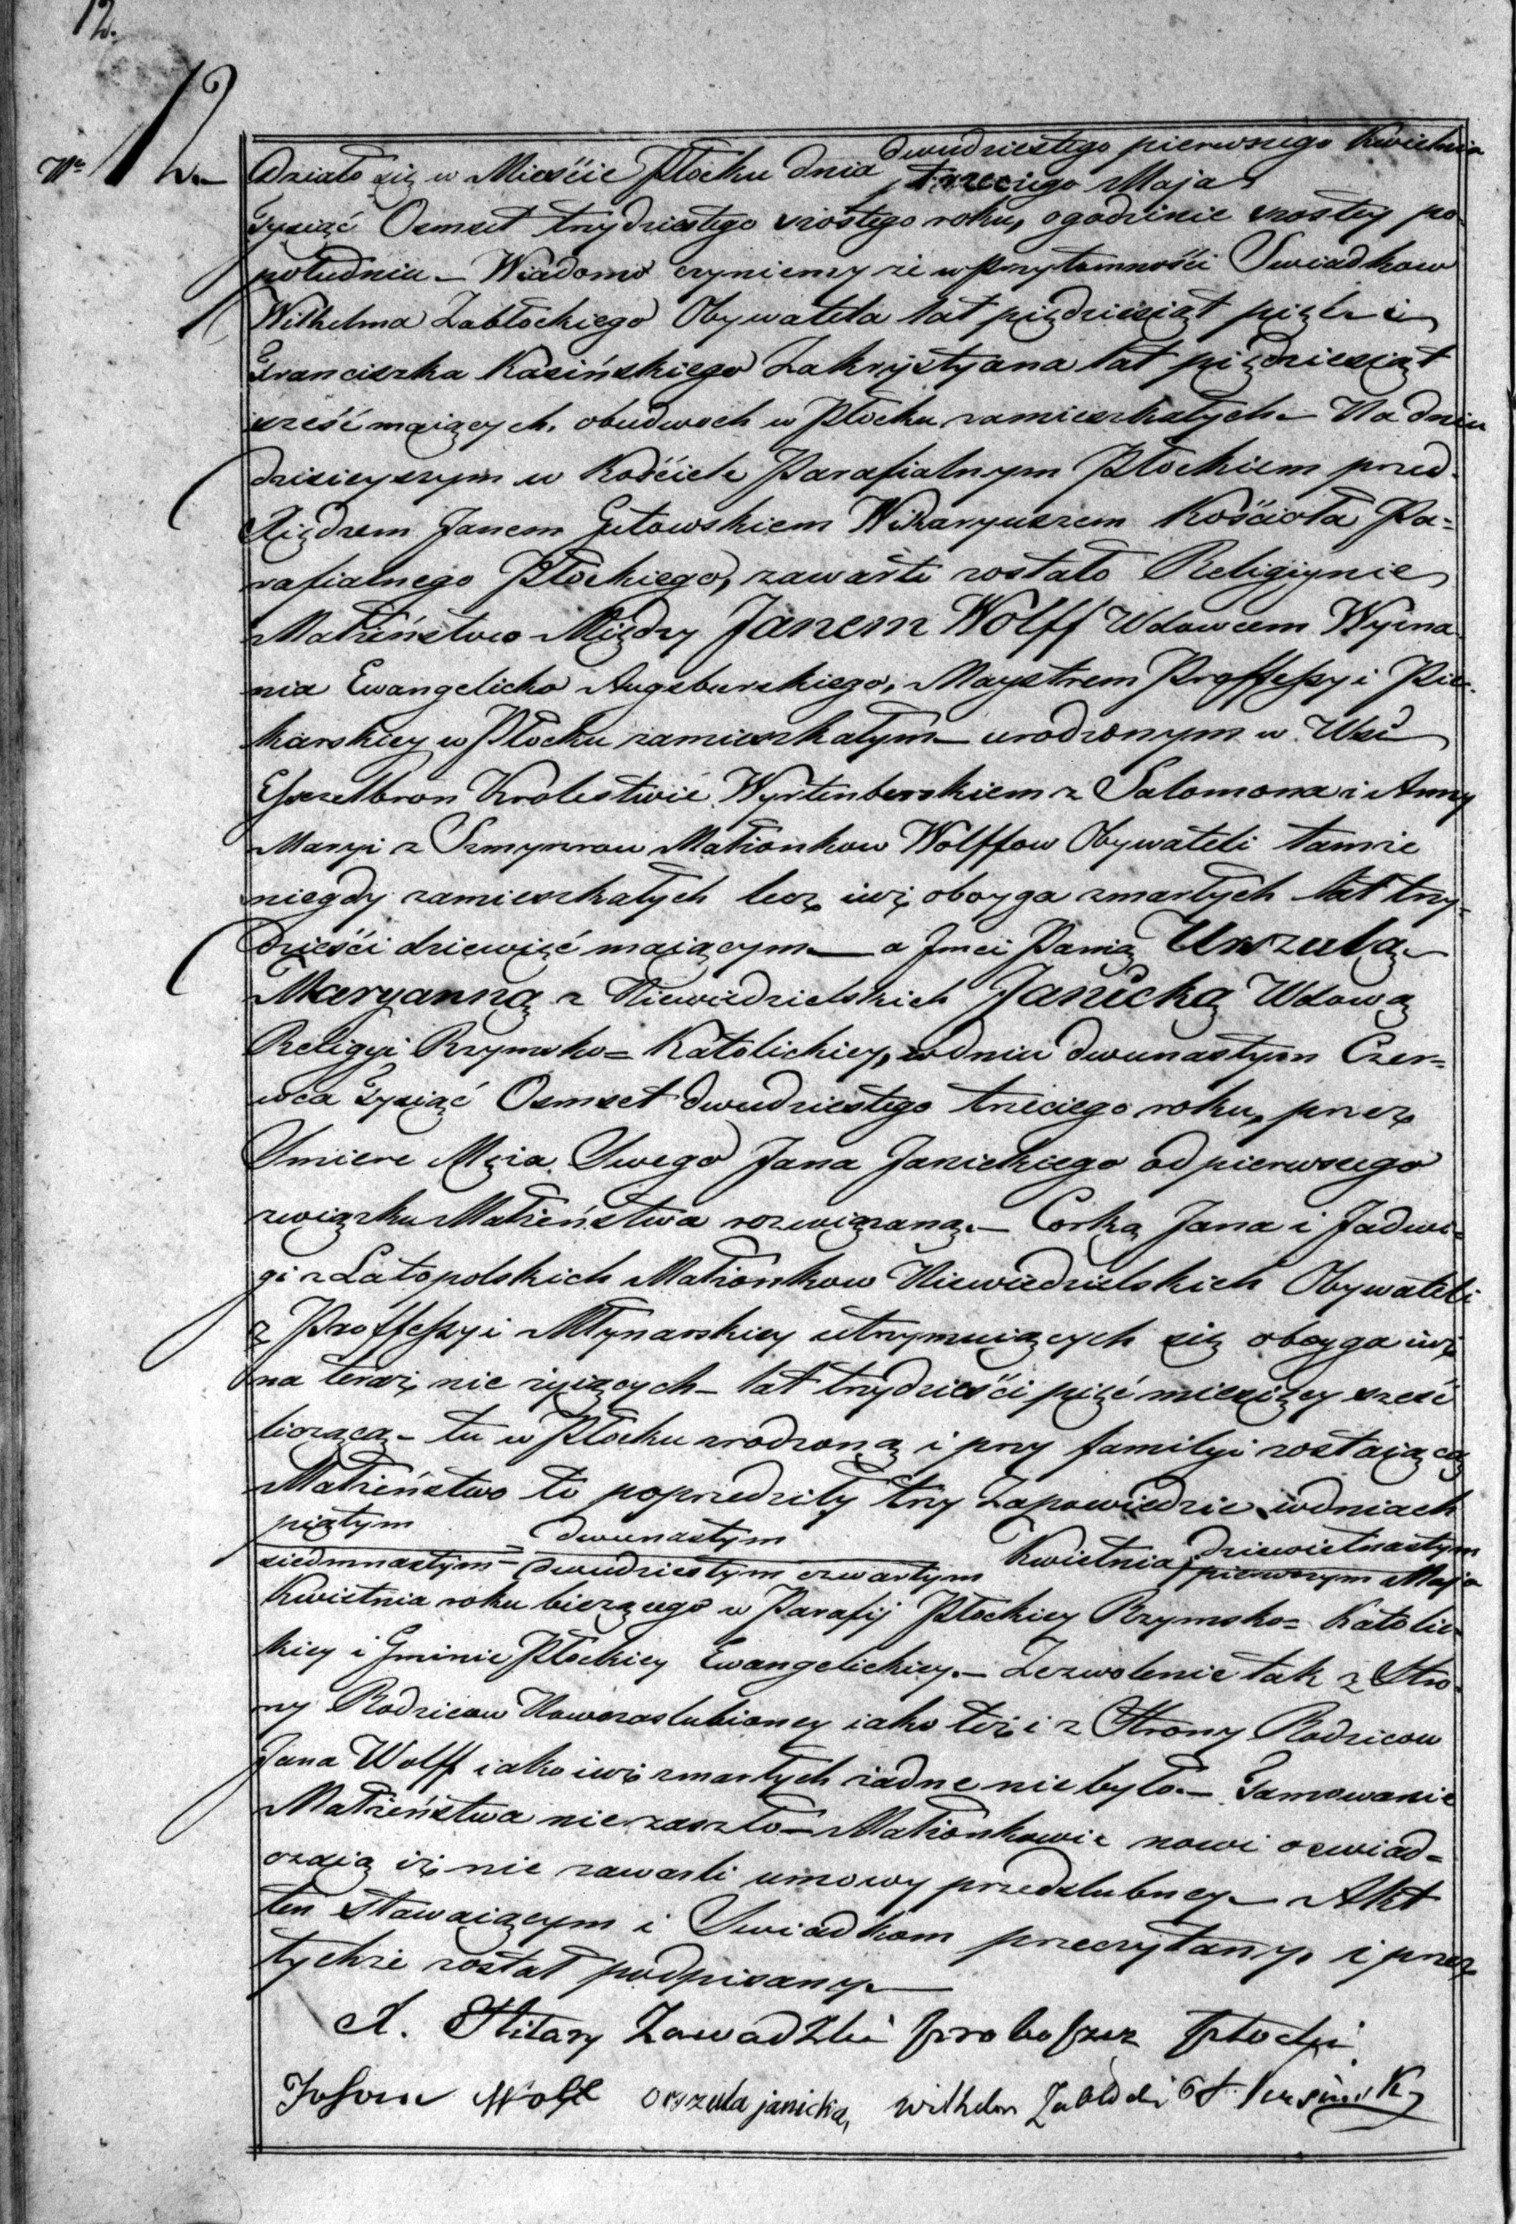 12.
Nr 12.
dwudziestego pierwszego Kwietnia
Działo się w Mieście Płocku dnia trzeciego Maja
Tysiąć Osmset trzydziestego szóstego roku, o godzinie szostey po
południu – Wiadomo czyniemy że w przytomności Swiadkow
Wilhelma Zabłockiego Obywatela lat pięćdziesiąt pięć i
Franciszka Kasińskiego Zakrystyana lat pięćdziesiąt
sześć maiących, obudwoch w Płocku zamieszkałych – Na dniu
dzisieyszym w Kościele Parafialnym Płockiem przed
Xiędzem Janem Gutowskiem Wikaryuszem Kościoła Pa=
rafialnego Płockiego, zawarte zostało Religiynie
Małżeństwo Między Janem Wolff Wdowcem Wyzna
nia Ewangelicko Augsburskiego, Maystrem Proffessyi Pie
karskiey w Płocku zamieszkałym – urodzonym w Wsi
Esszelbron Krolestwie Wyrtenberskiem z Salomona i Anny
Maryi z Szmyrow Małżonkow Wolffow Obywateli tamże
niegdy zamieszkałych lecz iuż oboyga zmarłych lat trzy=
dzieści dziewięć maiącym – a Jmci Panią Urszulą
Maryanną z Niewiedzielskich Janicką Wdową
Religyi Rzymsko= Katolickiey, w dniu dwunastym Czer=
wca Tysiąć Osmset dwudziestego trzeciego roku, przez
Smierc Męża Swego Jana Janickiego od pierwszego
związku Małżeństwa rozwiązaną. – Corką Jana i Jadwi=
gi z Latopolskich Małżonkow Niewiedzielskich Obywateli
z Proffessyi Młynarskiey utrzymuiących się oboyga iuż
na teraz nie żyiących – lat trzydzieści pięć miesięcy sześć
liczącą – tu w Płocku zrodzoną i przy familyi zostaiącą
Małżeństwo to poprzedziły trzy Zapowiedzie w dniach
piątym dwunastym dziewietnastym
siedmnastym= dwudziestym czwartym Kwietnia, pierwszym Maja
Kwietnia roku bieżącego w Parafij Płockiey Rzymsko= Katolic
kiey i Gminie Płockiey Ewangelickiey. – Zezwolenie tak z Stro
ny Rodzicow Nowozaslubioney iako też i z Strony Rodzicow
Jana Wolff iako iuż zmarłych żadne nie było. – Tamowanie
Małżeństwa nie zaszło – Małżonkowie nowi oswiad=
czaią iż nie zawarli umowy przedslubney – Akt
ten Stawaiącym i Swiadkom przeczytany, i przez
tychże został podpisany –
X. Hilary Zawadzki proboszcz Płocki
Johann Wolf Orszula janicka, Wilhelm Zabłocki F. Kasinski